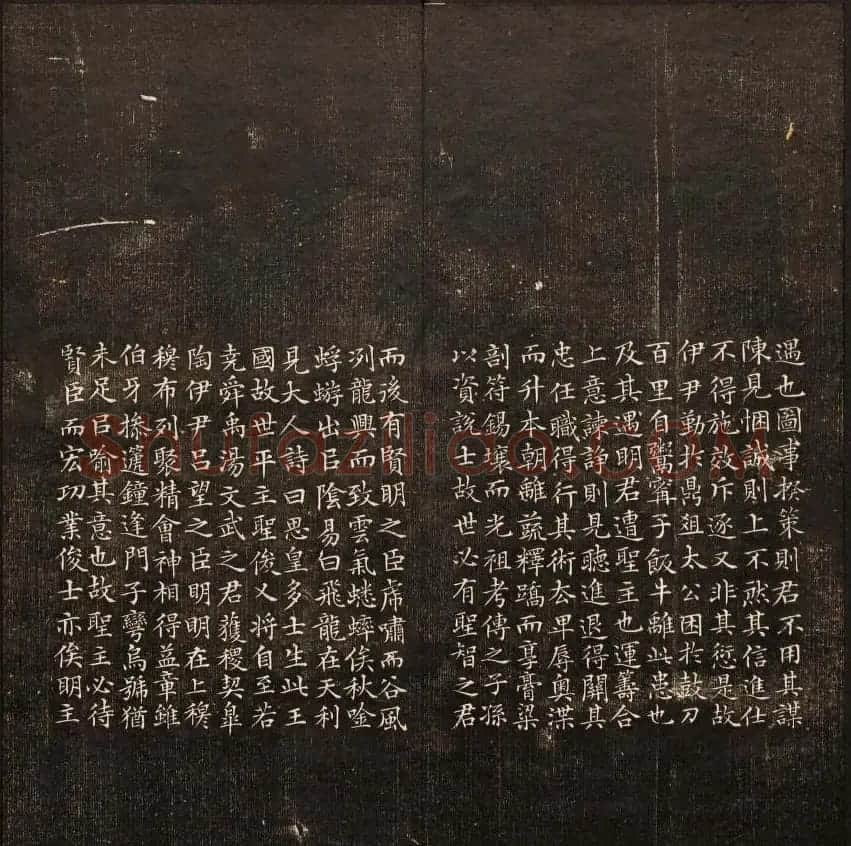 遇也圖事揆策則君不用其謀
陳見悃誠則上不然其信進仕
不得施效斥逐又非其愆是故
伊尹勤於鼎俎太公困於鼓刀
百里自鬻甯子飯牛離此患也
及其遇明君遭聖主也運籌合
上意諫諍則見聽進退得關其
忠任職得行其術去卑辱奧渫
而升本朝離蔬釋蹻而享膏粱
剖符錫壤而光祖考傳之子孫
以資説士故世必有聖智之君
而後有賢明之臣虎嘯而谷風
冽龍興而致雲氣蟋蟀俟秋唫
蜉蝣出㠯陰易曰飛龍在天利
見大人詩曰思皇多士生此王
國故世平主聖俊乂將自至若
堯舜禹湯文武之君獲稷契皋
陶伊尹呂望之臣明明在上穆
穆布列聚精會神相得益章雖
伯牙操遞鐘逢門子彎烏號猶
未足㠯喻其意也故聖主必待
賢臣而宏功業俊士亦俟明主
Shufaziliao.COM